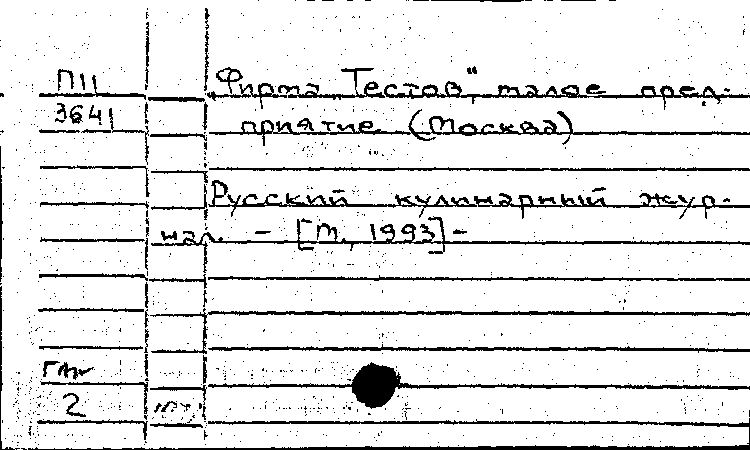 П11
3641
„Фирма „Тестов“, малое пред-
приятие (Москва)
Русский кулинарный жур-
нал. — [М., 1993] —
2